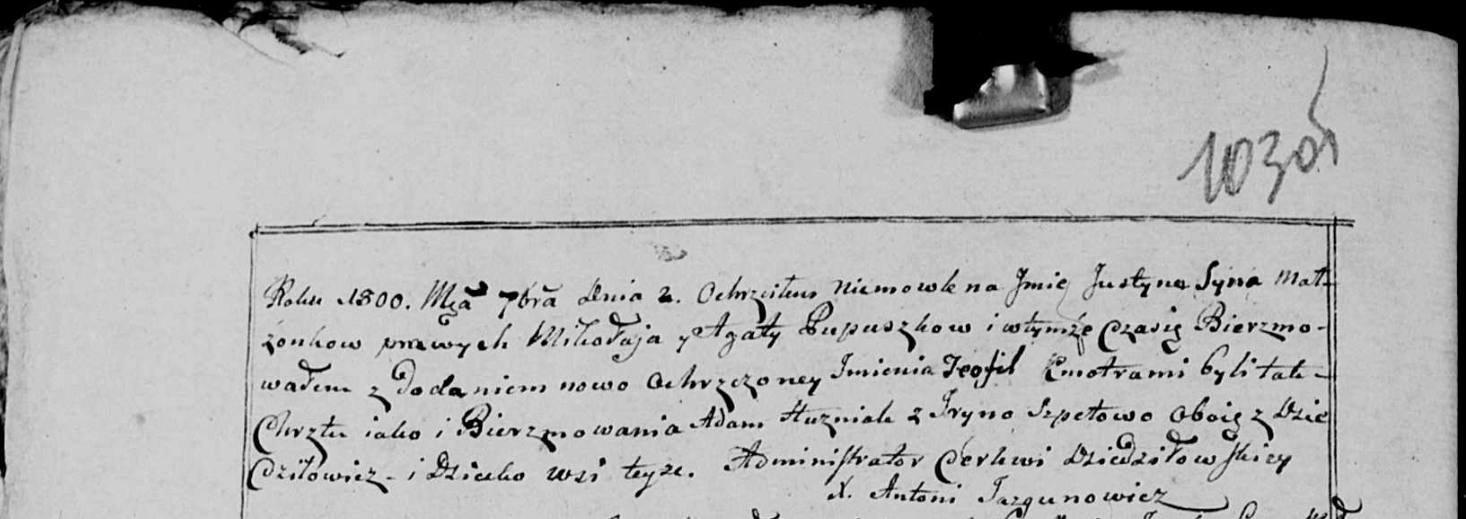 103об
Roku 1800. Mca 7bra Dnia 2. Ochrzciłem Niemowle na Jmię Justyna Syna Mał-
żonkow prawych Mikołaja y Agaty Pupuszkow i wtymże Czasię Bierzmo-
wałem z Dodaniem nowo Ochrzczoney Jmienia Teofil Kmotrami byli tak-
Chrztu iako i Bierzmowania Adam Huzniak z Jryno Szpetowo Oboię z Dzie
Dziłowicz - i Dziecko wsi teyże. Administrator Cerkwi Dziedziłowskiey
X. Antoni Jazgunowicz